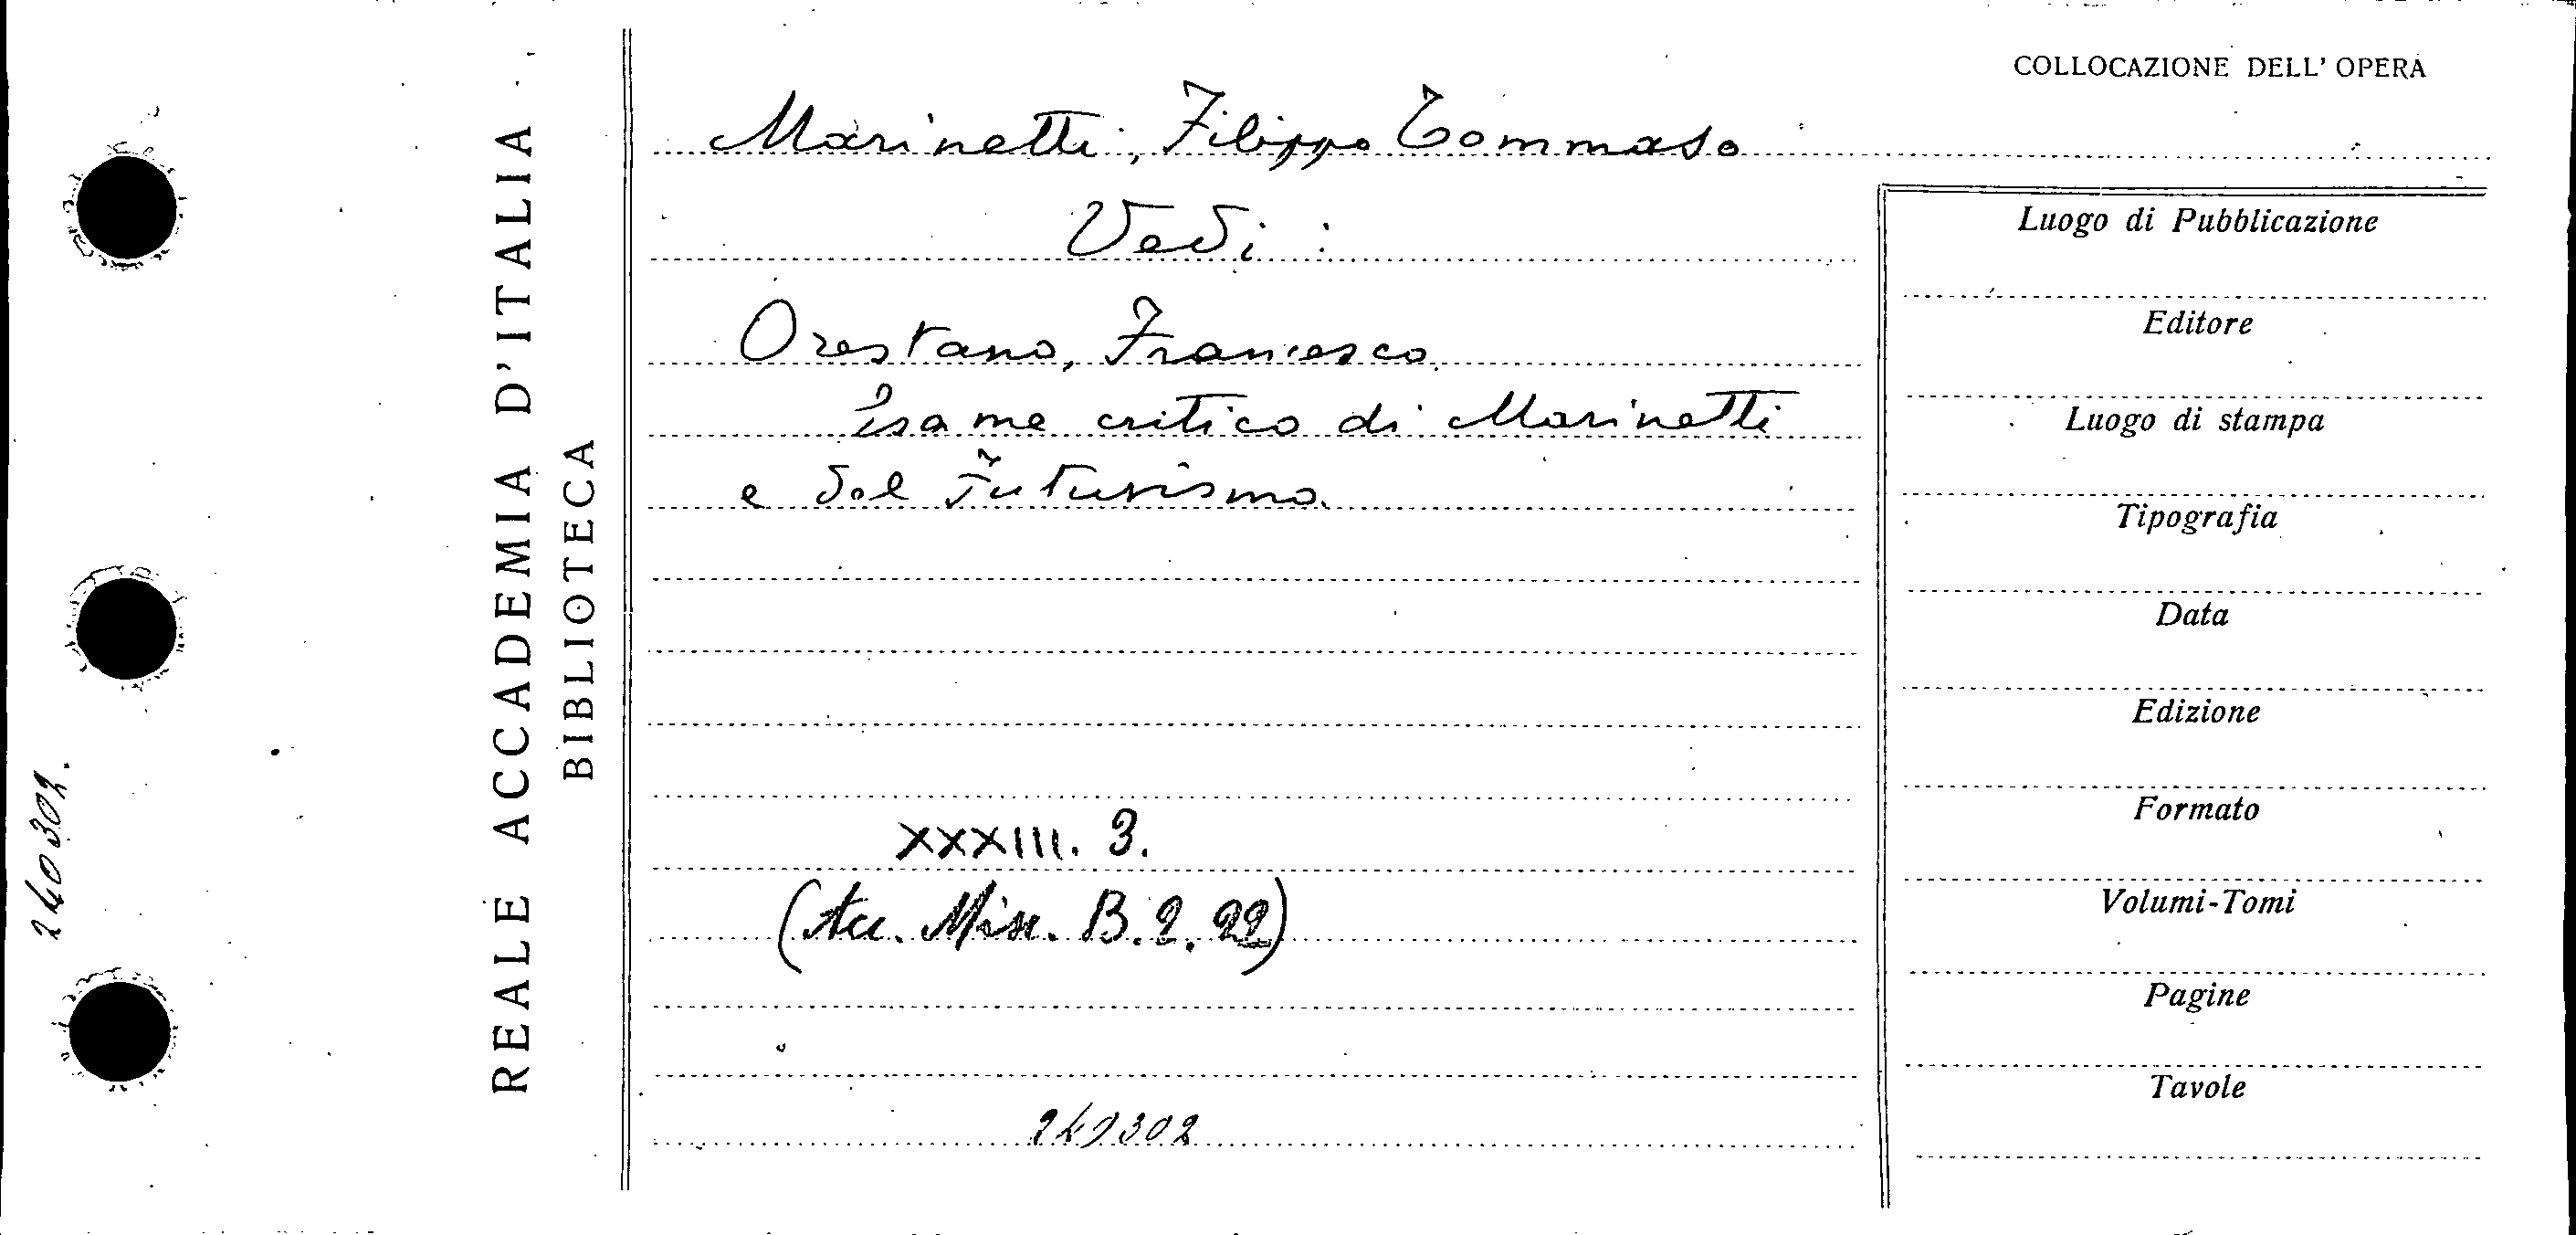 240302.
REALE ACCADEMIA D'ITALIA
BIBLIOTECA
COLLOCAZIONE DELL'OPERA
Marinetti, Filippo Tommaso
Vedi:
Orestano, Francesco.
Esame critico di Marinetti
e del Futurismo.
XXXIII. 3.
(Acc. Misc. B. 2. 22)
240302
Luogo di Pubblicazione
Editore
Luogo di stampa
Tipografia
Data
Edizione
Formato
Volumi-Tomi
Pagine
Tavole